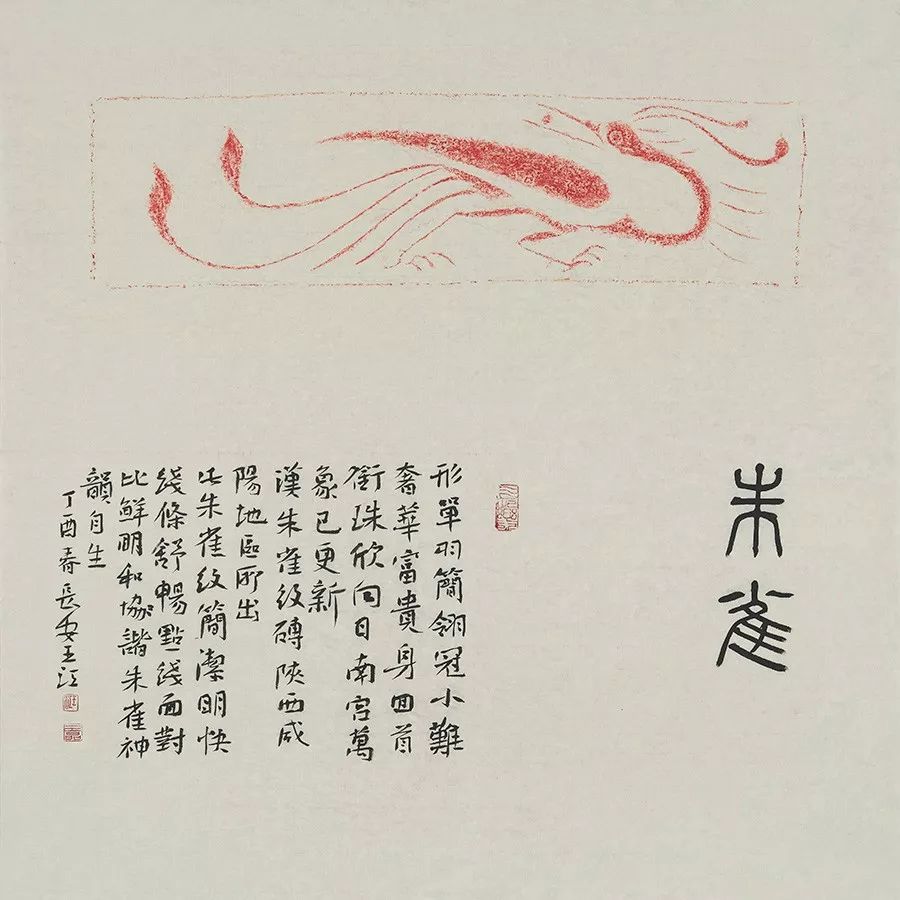 朱雀
形單羽簡翎冠小難
奢華富貴身回首
銜珠欣向日南宮萬
象已更新
漢朱雀紋磚陝西咸
陽地區所出
此朱雀紋簡潔明快
綫條舒暢點綫面對
比鮮明和協諧朱雀神
韻自生
丁酉春長安王江